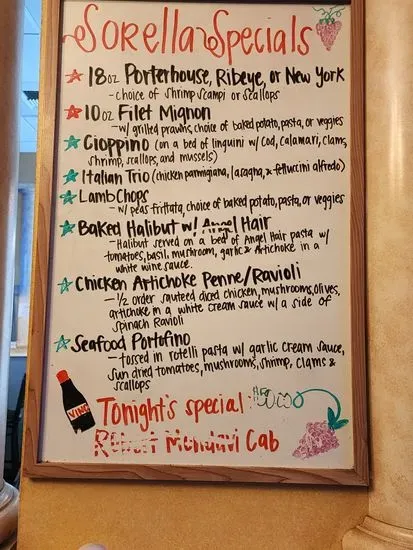 Sorella Specials
18oz Porterhouse, Ribeye, or New York
- choice of shrimp scampi or scallops
10oz Filet Mignon
- w/ grilled prawns, choice of baked potato, pasta, or veggies
Cioppino (on a bed of linguini w/ cod, calamari, clams,
shrimp, scallops, and mussels)
Italian Trio (chicken parmigiana, lasagna, & fettuccini alfredo)
Lamb Chops
- w/ peas frittata, choice of baked potato, pasta, or veggies
Baked Halibut w/ Angel Hair
- Halibut served on a bed of Angel Hair pasta w/
tomatoes, basil, mushroom, garlic & Artichoke in a
white wine sauce.
Chicken Artichoke Penne/Ravioli
- 1/2 order sauteed diced chicken, mushrooms, olives,
artichoke in a white cream sauce w/ a side of
spinach Ravioli
Seafood Portofino
- tossed in rotelli pasta w/ garlic cream sauce,
sun dried tomatoes, mushrooms, shrimp, clams &
scallops
VINO
Tonight's special:
Robert Mondavi Cab